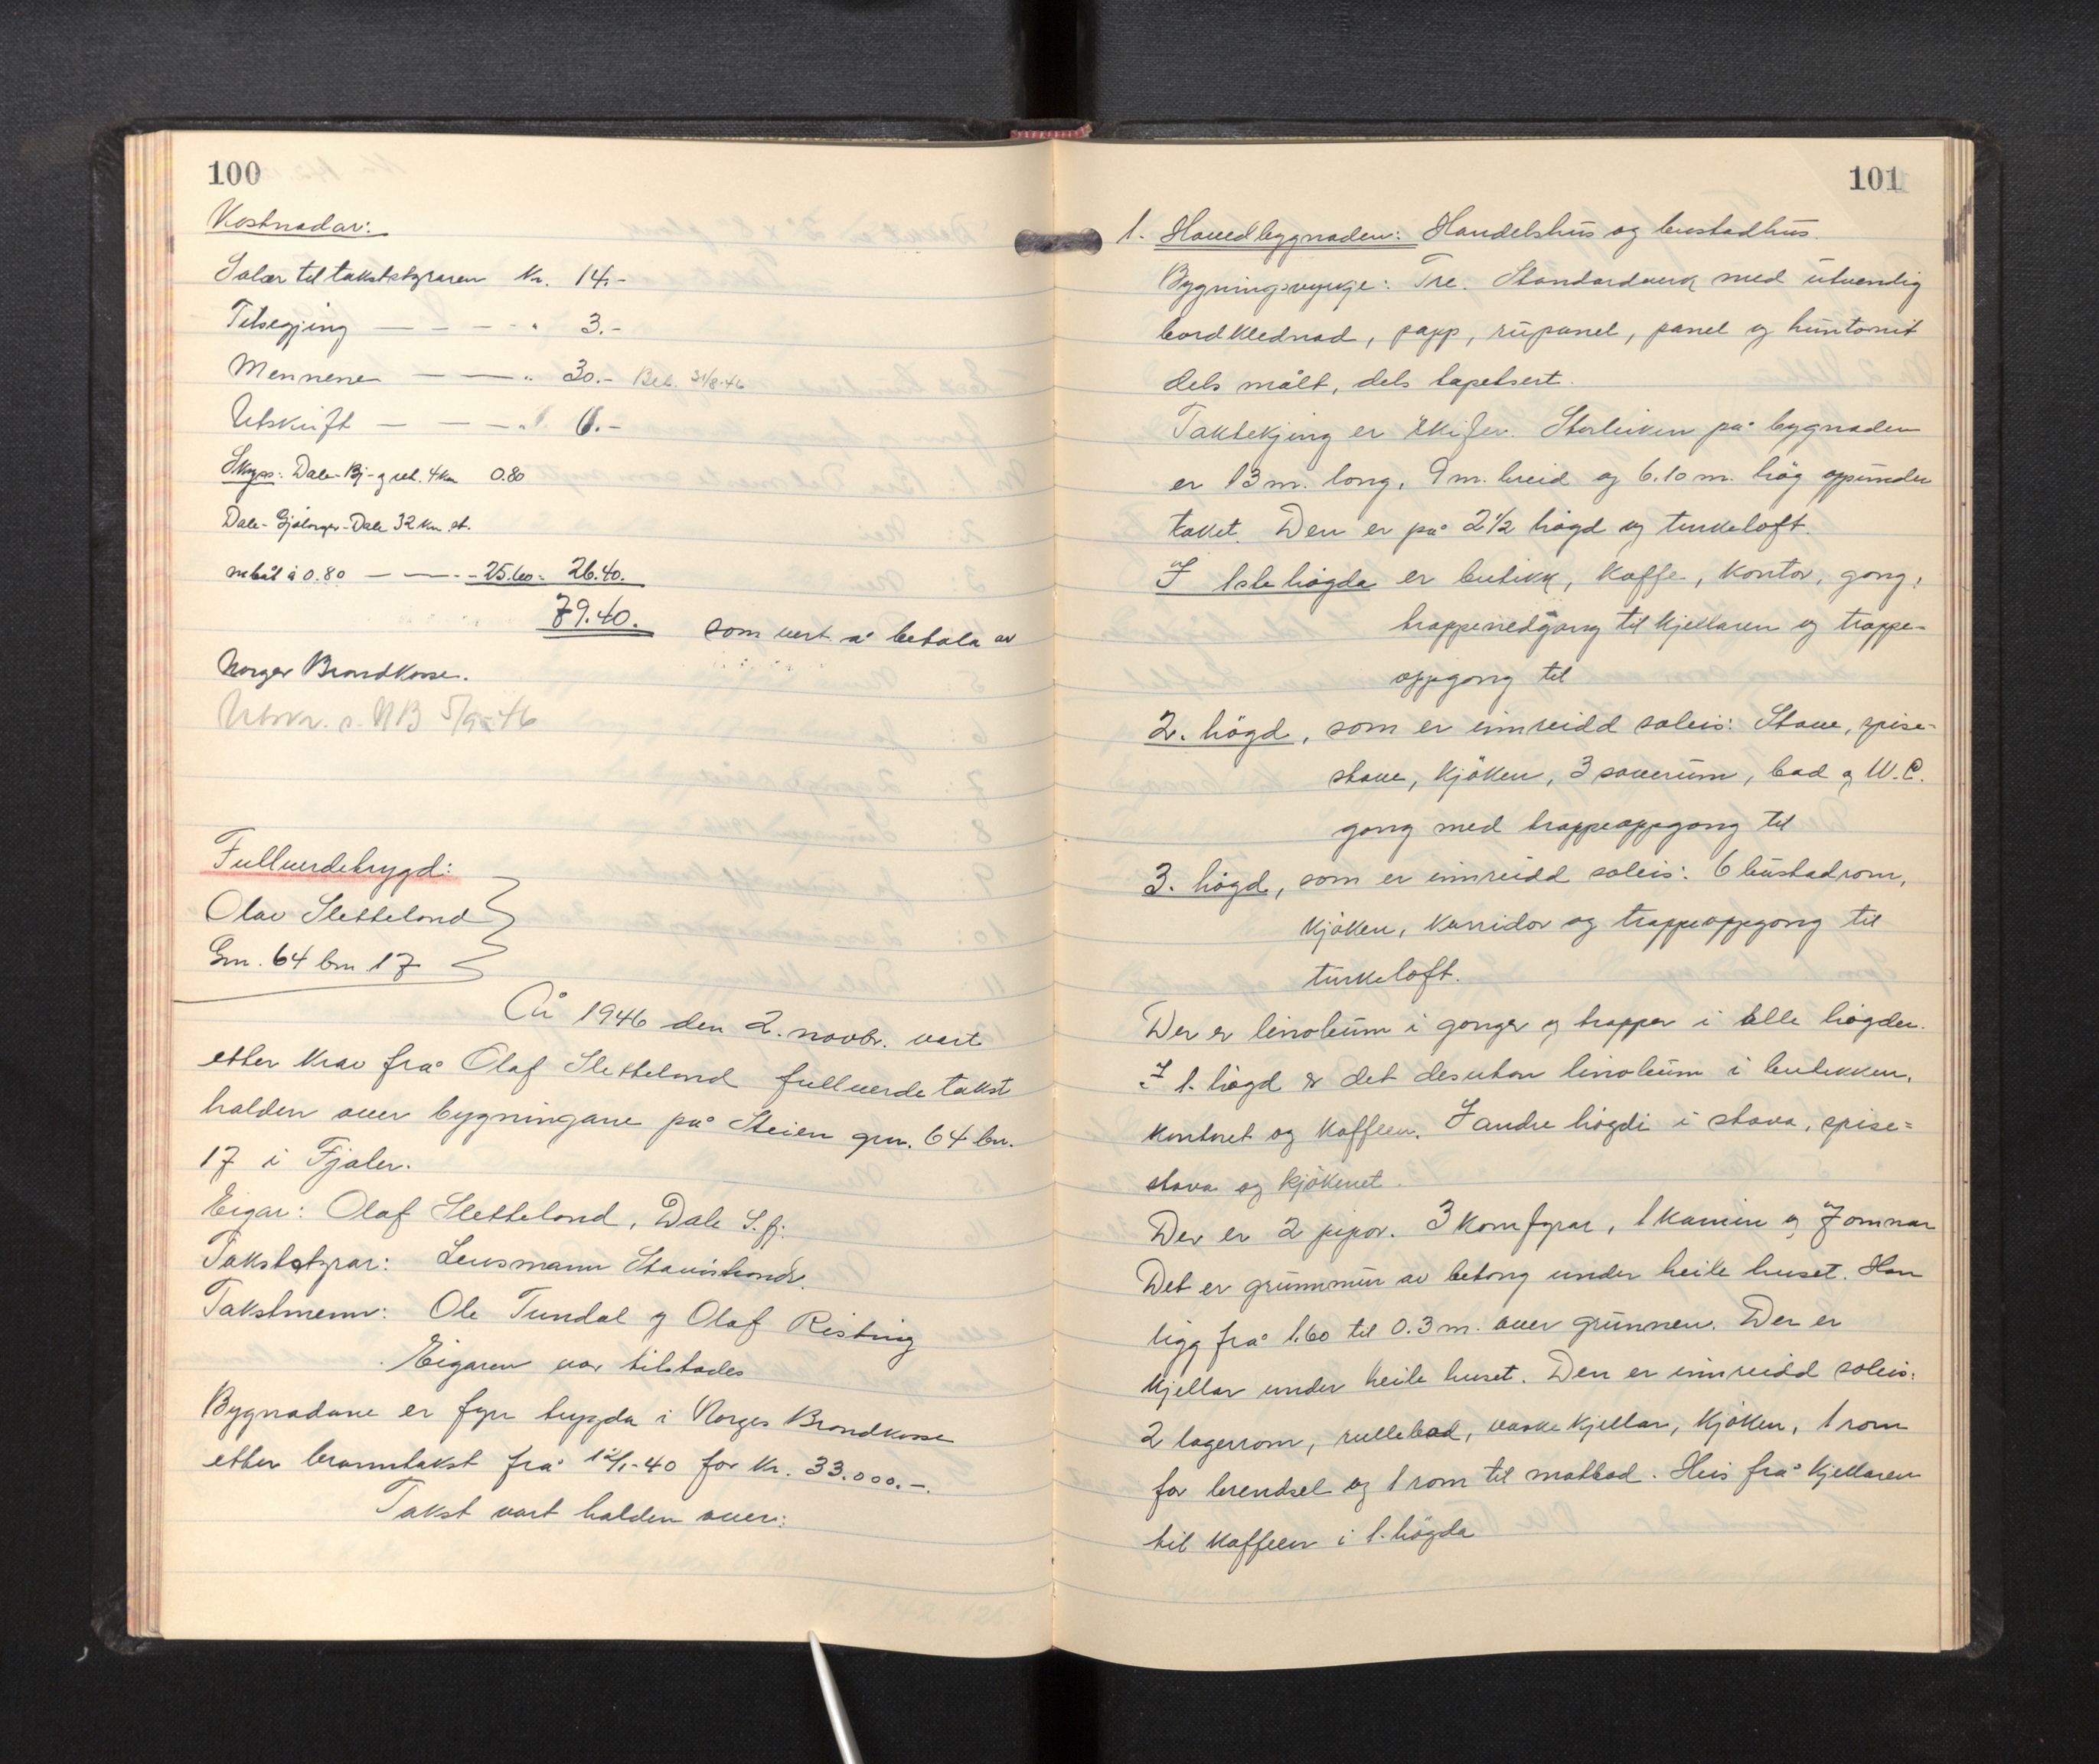 100
Kostnadar:
Salær til takststyraren Kr. 14.-
Tilsegjing — — — " 3.-
Mennene — — " 30.- Bet. 31/8-46
Utskrift — — — " 6.-
Skyss: Dale-Bj- og ret. 4 km 0.80
Dale- -Dale 32 km
m båt à 0.80 — — - 25.60 = 26.40.
79.40. som vert å betala av
Norges Brandkasse.
Utskr. s. NB 5/9-46
Fullverdetrygd:
Olav Sletteland
Gn. 64 bn. 17
År 1946 den 2. novbr. vart
etter krav frå Olaf Sletteland fullverde takst
halden over bygningane på Steien gnr. 64 bn.
17 i Fjaler.
Eigar: Olaf Sletteland, Dale S.fj.
Takststyrar: Lensmann Stavøstrand.
Takstmenn: Ole Tundal og Olaf Risting
Eigaren var tilstades
Bygnadane er fyrr trygda i Norges Brandkasse
etter branntakst frå 12/1-40 for kr. 33.000.-.
Takst vart halden over:
101
1. Hovedbygnaden: Handelshus og bustadhus.
Bygningsvyrkje: Tre. Standardverk med utvendig
bordklednad, papp, rupanel, panel og huntonit
dels målt, dels tapetsert.
Taktekjing er skifer. Storleiken på bygnaden
er 13 m. long, 9 m. breid og 6.10 m. høg oppunder
taket. Den er på 2 1/2 högd og turkeloft.
I 1ste högda er butikk, kaffe, kontor, gong,
trappenedgang til kjellaren og trappe-
oppgong til
2. högd, som er innreidd soleis: Stove, spise-
stove, kjöken, 3 soverum, bad og W.C.
gong med trappeoppgong til
3. högd, som er innreidd soleis: 6 bustadrom,
kjöken, korridor og trappeoppgong til
turkeloft.
Der er linoleum i gonger og trapper i alle högder.
I 1. högd er det desutan linoleum i butikken,
kontoret og kaffeen. I andre högdi i stova, spise=
stova og kjökenet.
Der er 2 pipor. 3 komfyrar, 1 kamin og 7 omnar
Det er grunnmur av betong under heile huset. Han
ligg frå 1.60 til 0.3 m. over grunnen. Der er
kjellar under heile huset. Den er innreidd soleis:
2 lagerrom, rullebod, vaskekjellar, kjöken, 1 rom
for brendsel og 1 rom til matbod. Heis frå kjellaren
til kaffeen i 1. högda